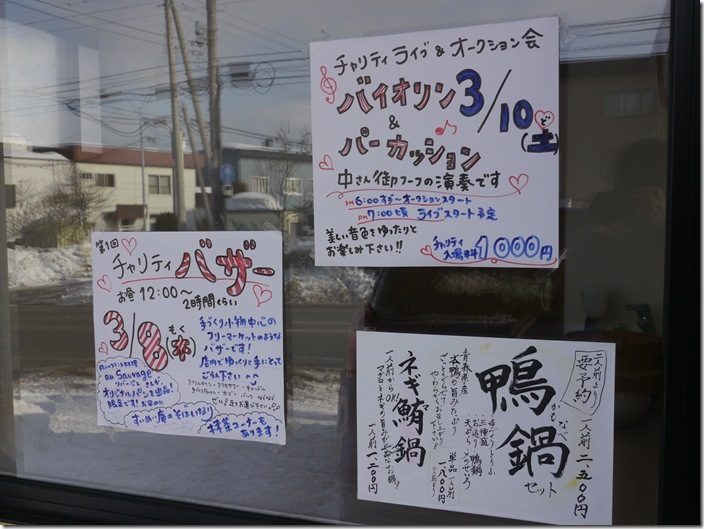 チャリティ ライブ & オークション会
バイオリン 3/10(土)
&
パーカッション
中さん御フーフの演奏です
PM 6:00すぎ〜オークションスタート
PM 7:00頃 ライブスタート予定
美しい音色をゆったりと
お楽しみ下さい!!
チャリティ
入場料 1000円
第1回
チャリティ バザー
お昼 12:00〜
2時間くらい
3/8(木)
もく
手づくり小物中心の
フリーマーケットのような
バザーです!
店内でゆっくりと手にとって
ごらん下さい
au Sauvage
オリジナルパンを出品!
限定です!お早めに
そばいなり
抹茶コーナーも
あります!
二人前より
要予約
一人前 二、五〇〇円
鴨鍋
かもなべ
セット
青森県産
本鴨の旨みたっぷり
三種盛
お造り
天ぷら
鴨鍋
〆のせいろ
単品一人前
一、八〇〇円
ネギ鮪鍋
一人前からOK!
マグロとネギの旨みが上品なお鍋!!
一人前 一、二〇〇円